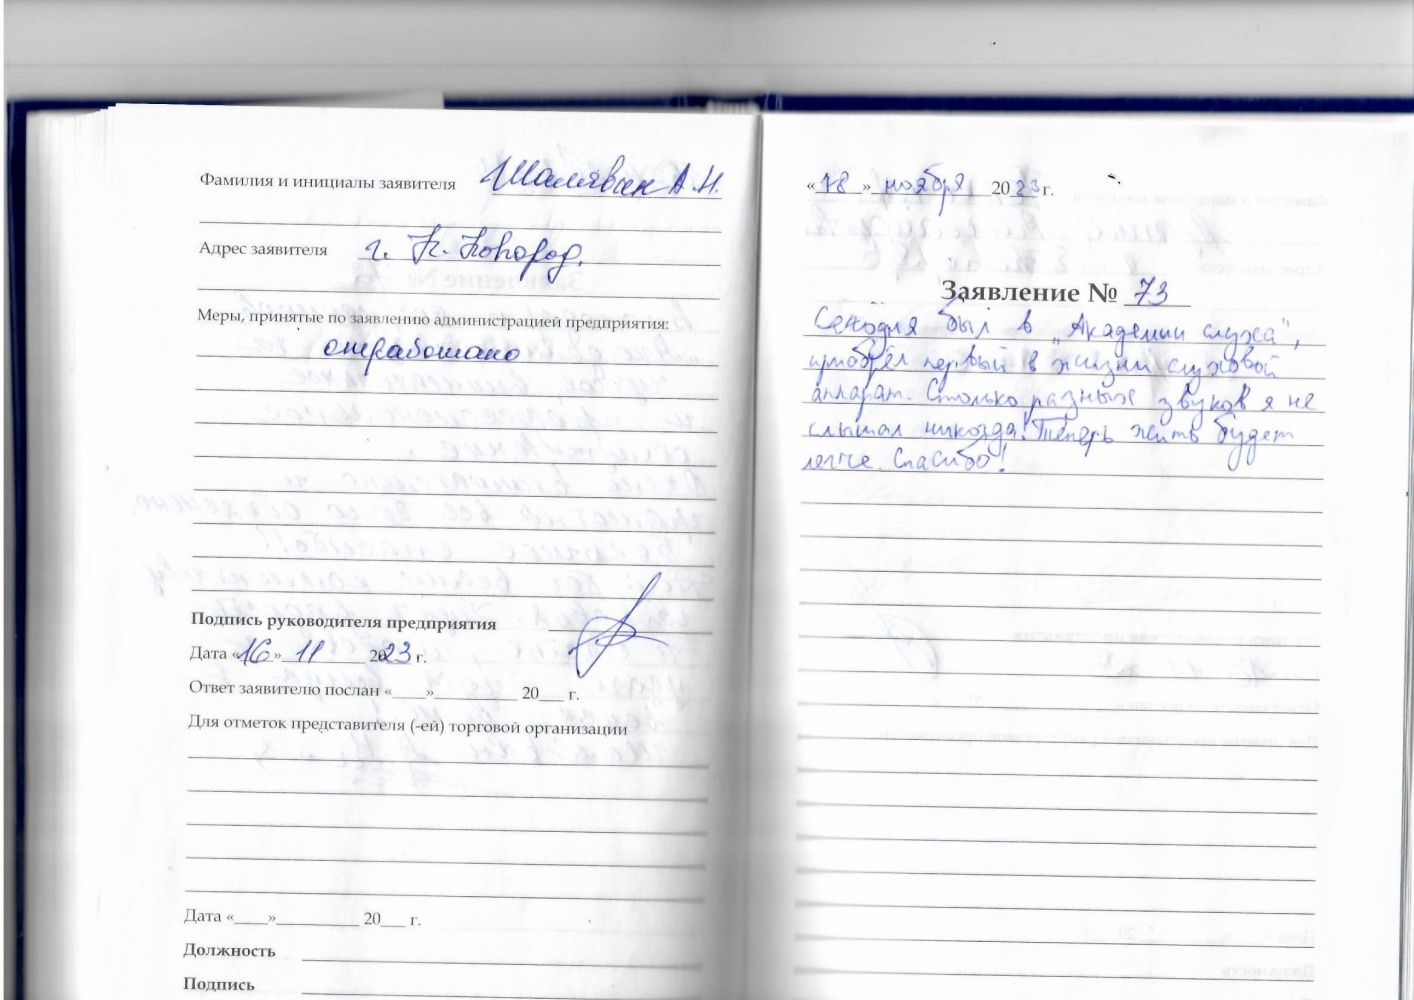 Фамилия и инициалы заявителя А.Н.
Адрес заявителя г. Н. Новгород.
Меры, принятые по заявлению администрацией предприятия:
отработано
Подпись руководителя предприятия
Дата «16» 11 2023 г.
Ответ заявителю послан «____»__________ 20___ г.
Для отметок представителя (-ей) торговой организации
Дата «____»__________ 20___ г.
Должность
Подпись
«18» ноября 2023 г.
Заявление № 73
Сегодня был в „Академии слуха",
приобрёл первый в жизни слуховой
аппарат. Столько разных звуков я не
слышал никогда! Теперь жить будет
легче. Спасибо!